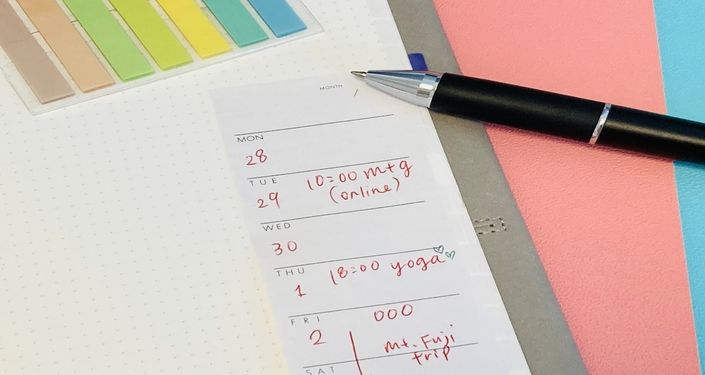 MONTH
/
MON
28
TUE
29 10:00 mtg
(online)
WED
30
THU
1 18:00 yoga♡♡
FRI
2 000
Mt. Fuji
trip
SAT